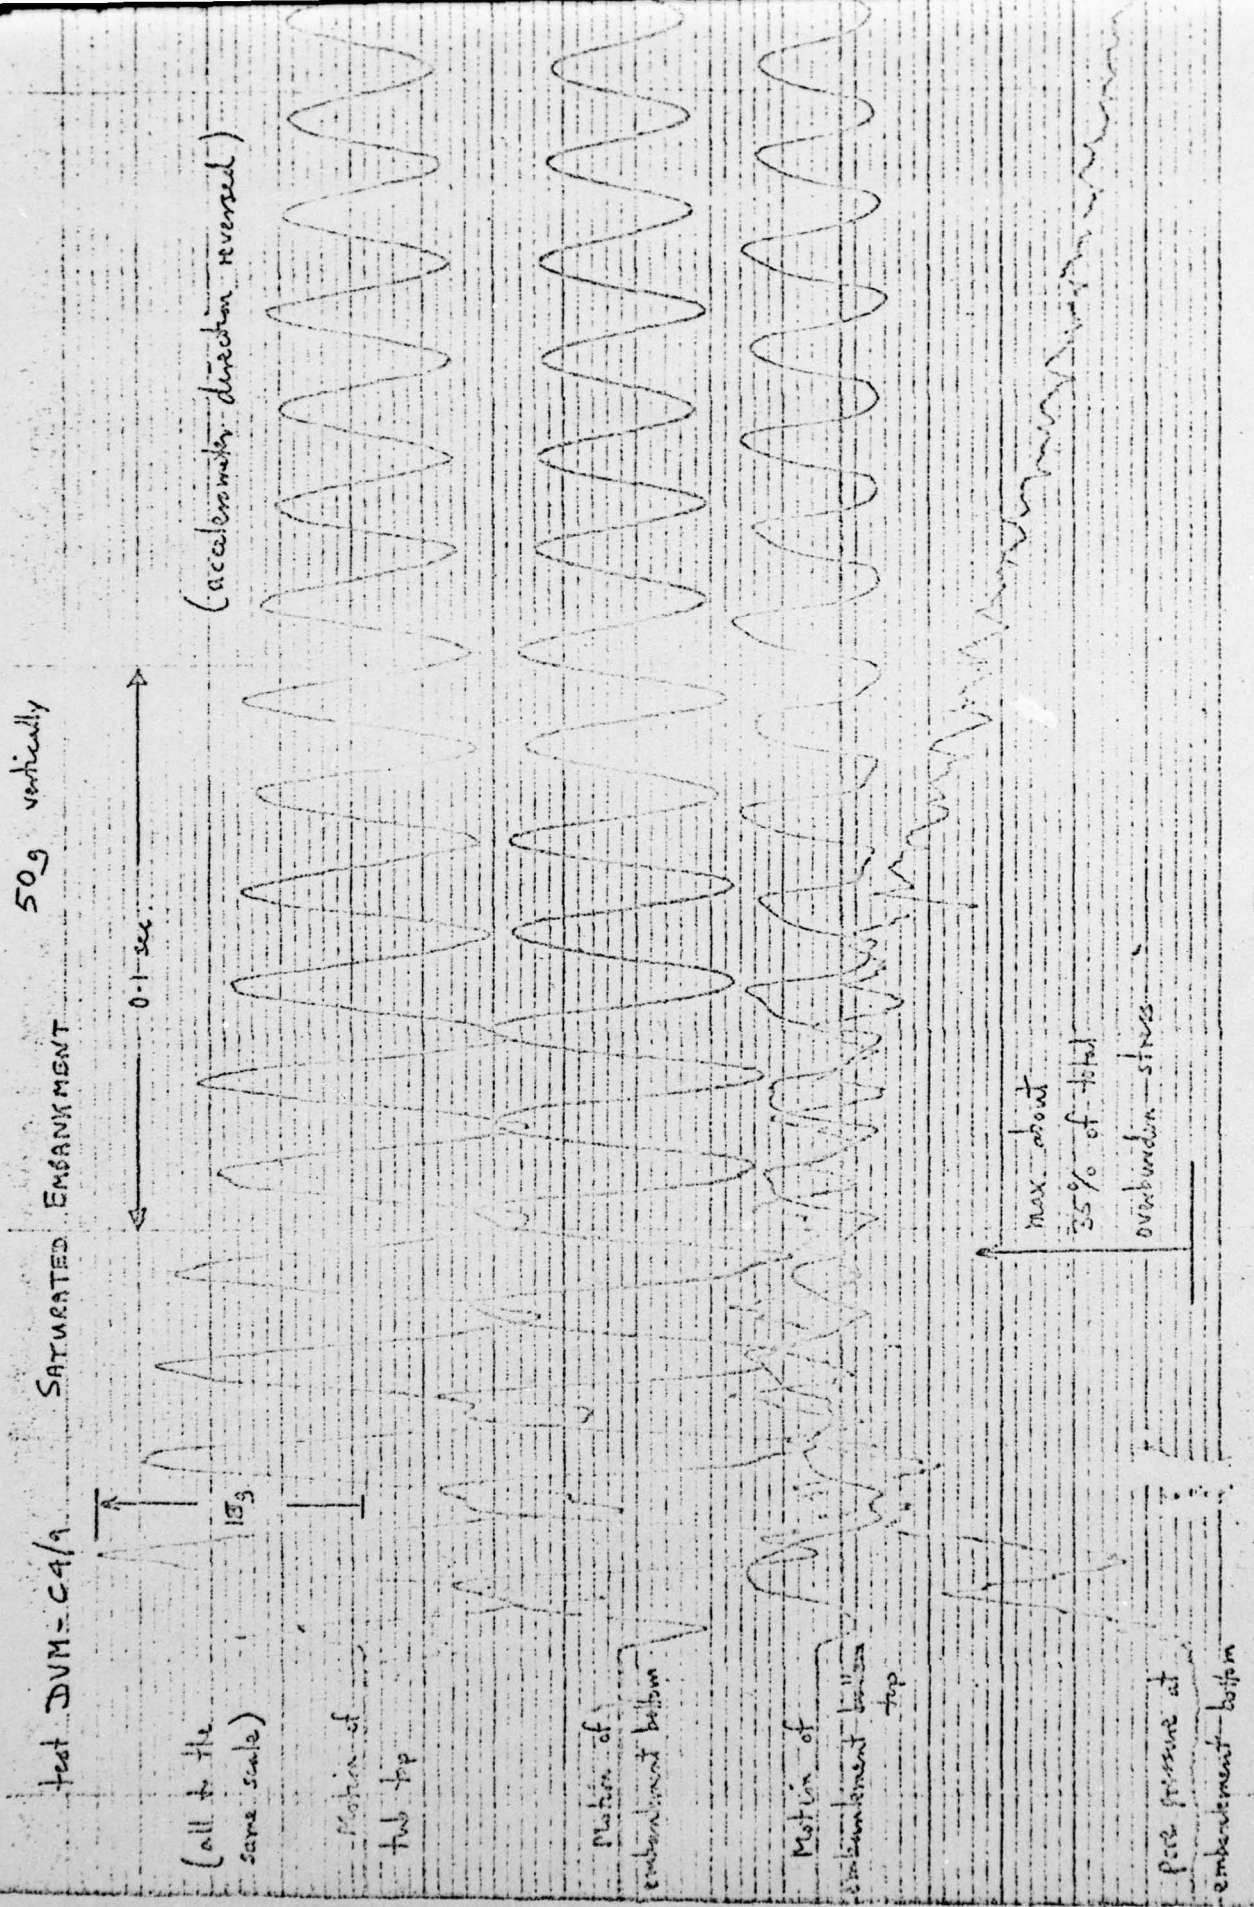 test DVM-C4/9 SATURATED EMBANKMENT 50g vertically
0.1 sec.
(all to the
same scale)
(accelerometer direction reversed)
Motion of
tub top
Motion of
embankment bottom
Motion of
embankment
top
max. about
35% of total
overburden stress
pore pressure at
embankment bottom